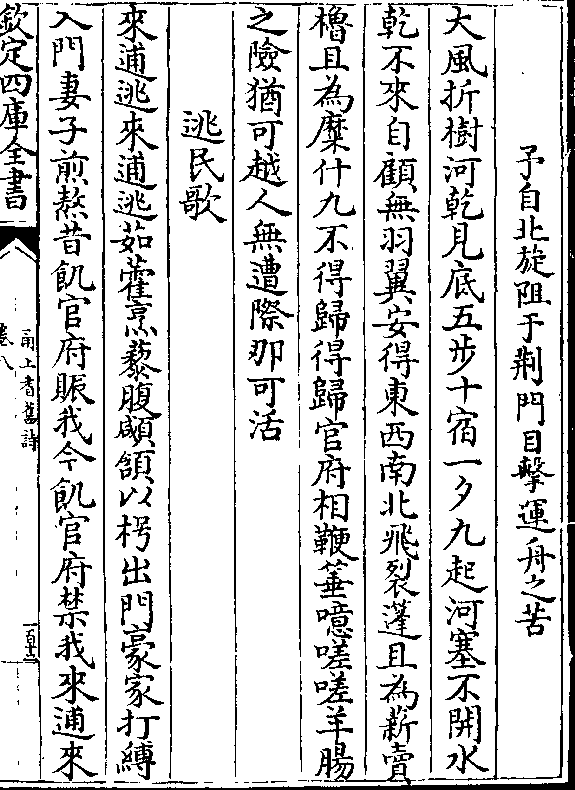 予自北旋阻于荆門目擊運舟之苦
大風折樹河乾見底五步十宿一夕九起河塞不開水
乾不來自顧無羽翼安得東西南北飛裂蓬且為薪賣
櫓且為糜什九不得歸得歸官府相鞭箠噫嗟嗟羊腸
之險猶可越人無遭際那可活
逃民歌
來逋逃來逋逃茹藿烹藜腹顑頷以枵出門豪家打縛
入門妻子煎熬昔飢官府賑我今飢官府禁我來逋來
欽定四庫全書
甬上耆舊詩
卷八